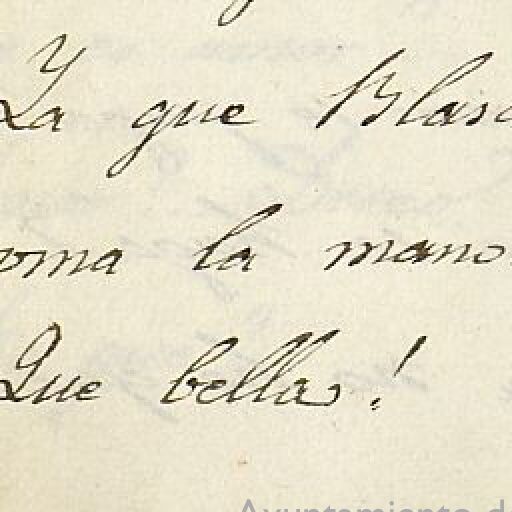 Ya que Blas
oma la mano
Que bella!
Ayuntamiento de